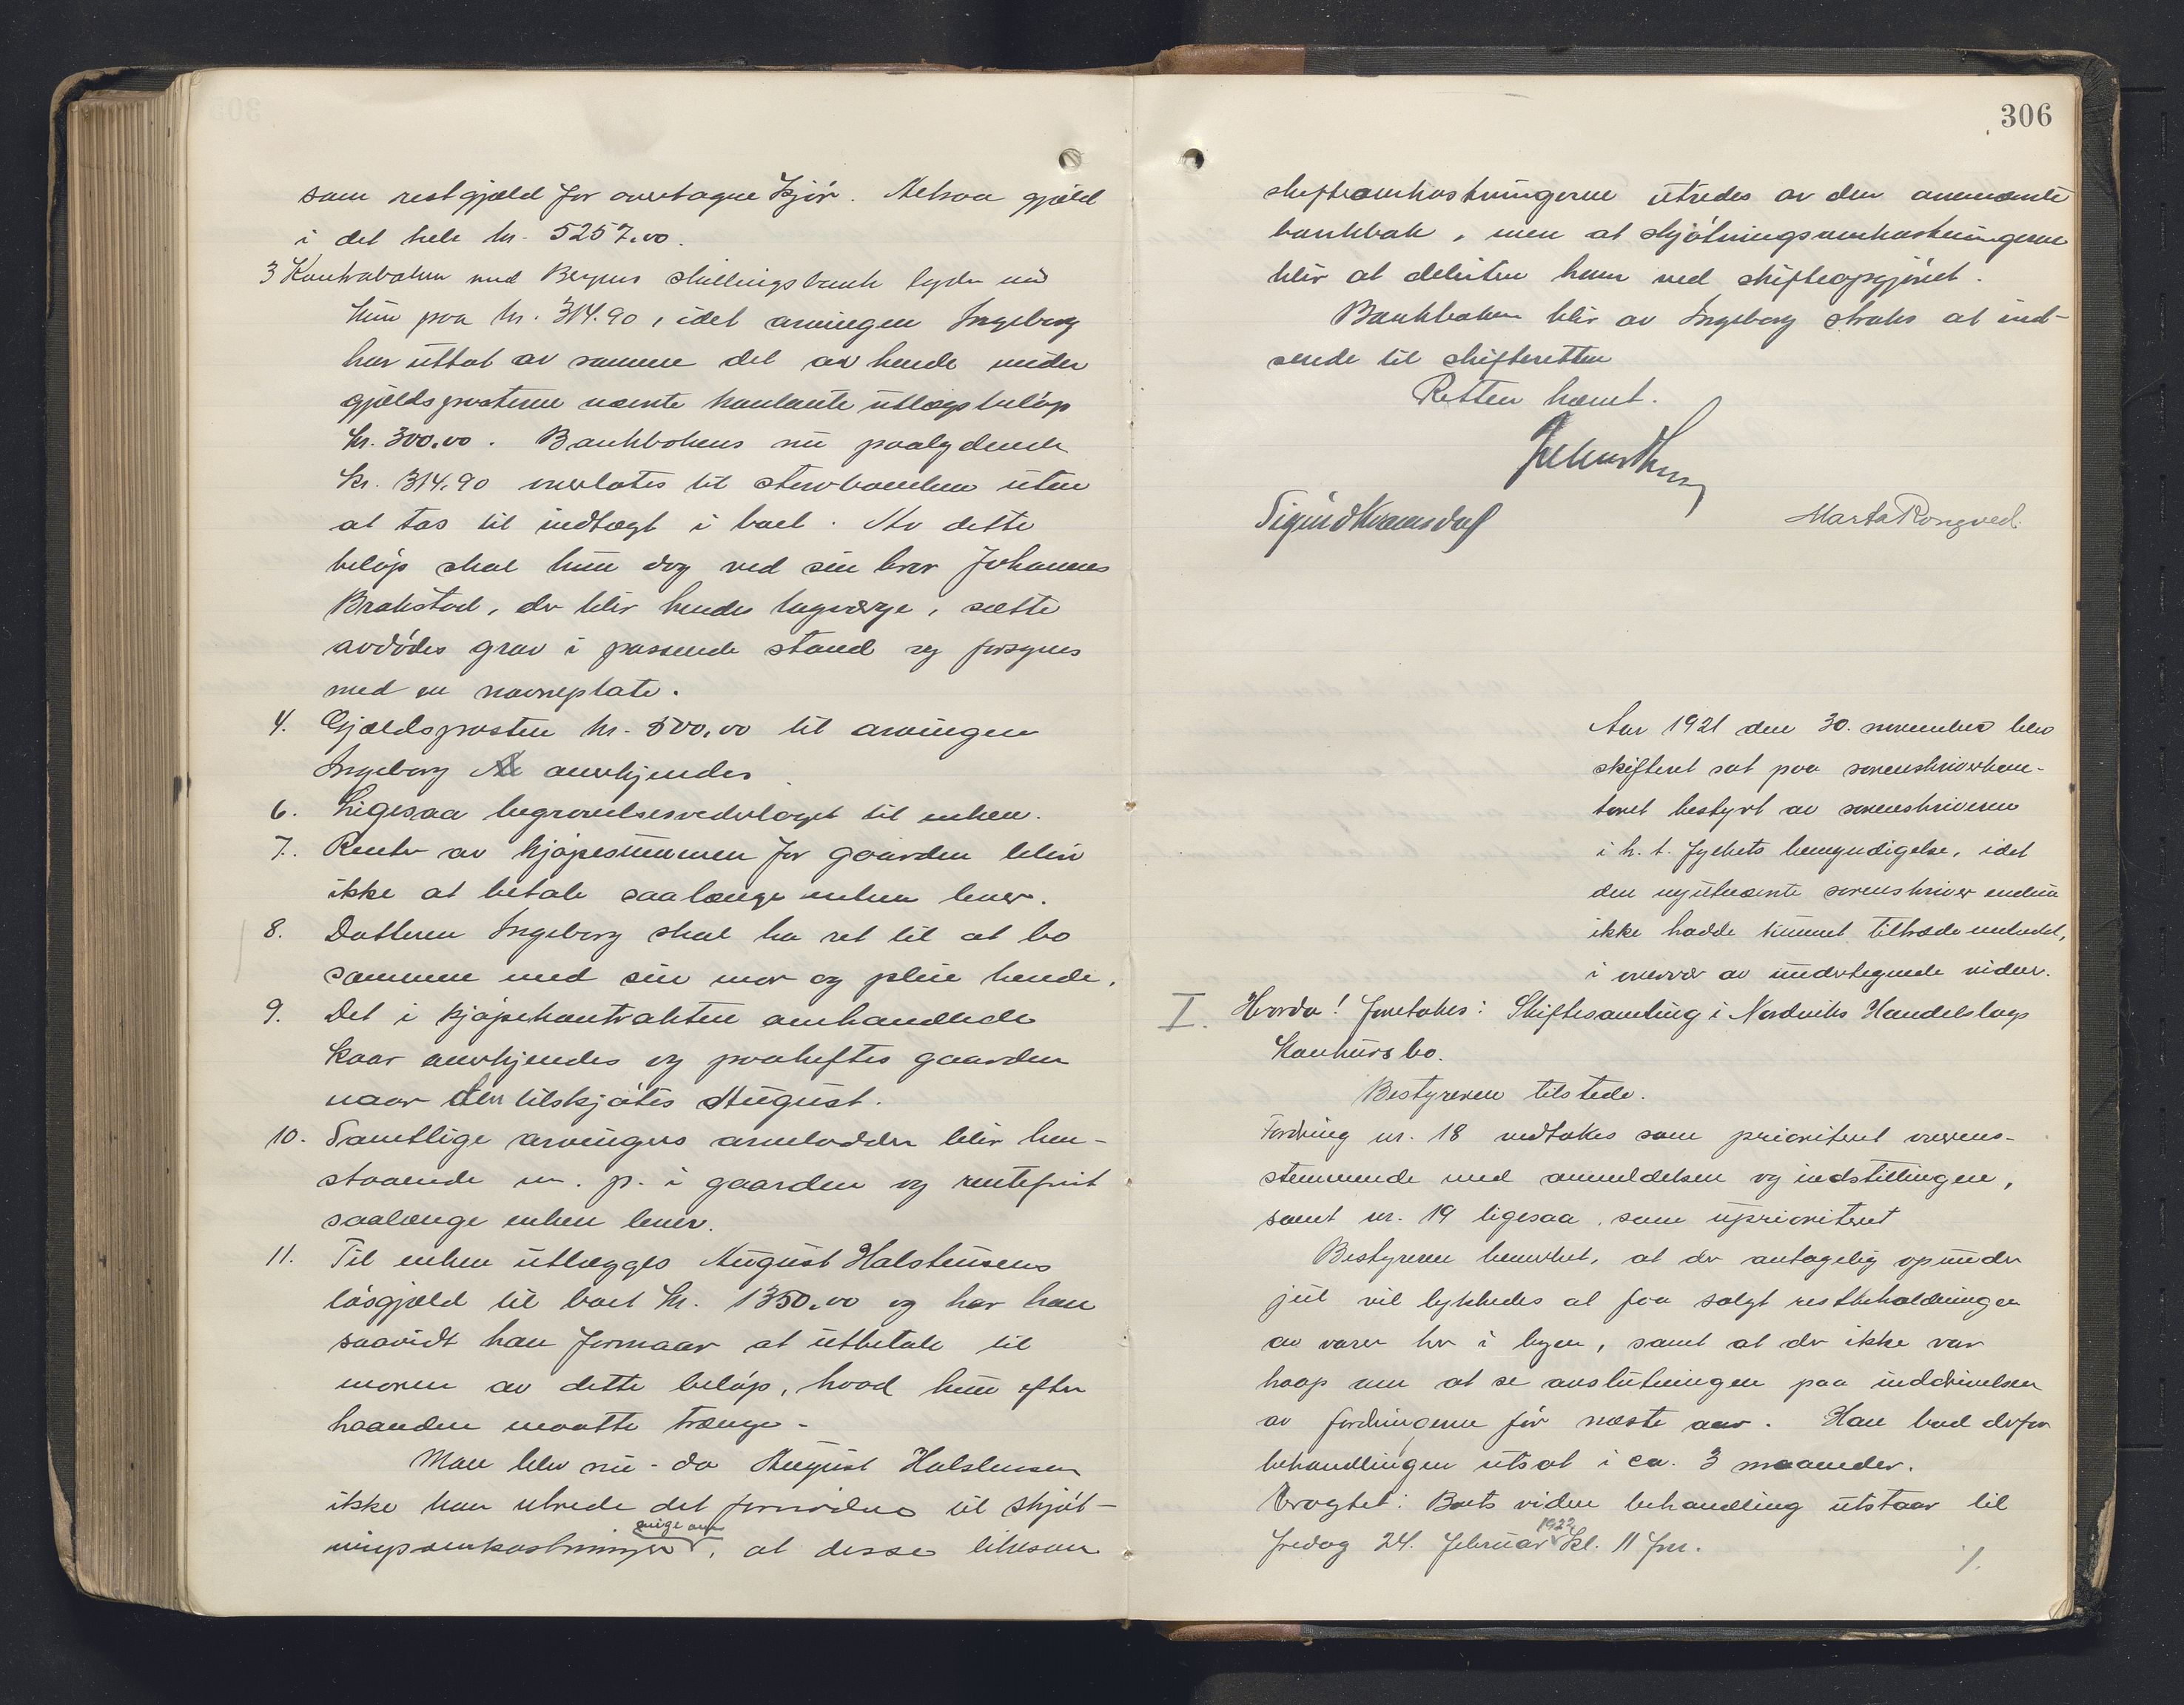 som restgjæld for overtagne kjør. Altsaa gjæld
i det hele kr. 5257.00.
3 Kontraboken med Bergens Skillingsbank lyder nu
kun paa kr. 314.90, idet arvingen Ingeborg
har uttat av samme det av hende under
gjældsposterne nævnte kontante utlægsbeløp
kr. 300.00. Bankbokens nu paalydende
kr. 314.90 overlates til stervboenken uten
at tas til indtægt i boet. Av dette
beløp skal hun dog ved sin bror Johannes
Brakstad, der blir hendes lagværge, sætte
avdødes grav i passende stand og forsynes
med en navneplate.
4. Gjældsposten kr. 500,00 til arvingen
Ingeborg anerkjendes.
6. Ligesaa begravelsesvederlaget til enken.
7. Renter av kjøpesummen for gaarden bliv
ikke at betale saalænge enken lever.
8. Datteren Ingeborg skal ha ret til at bo
sammen med sin mor og pleie hende.
9. Det i kjøpekontrakten omhandlede
kaar anerkjendes og paaheftes gaarden
naar den tilskjøtes August.
10. Samtlige arvingers arvelodder blir hen-
staaende m. p. i gaarden og rentefrit
saalænge enken lever.
11. Til enken utlægges August Halstensens
løsgjæld til boet kr. 1350.00 og har han
saavidt han formaar at utbetale til
moren av dette beløp, hvad hun efter
haanden maatte trænge.
Man blev nu - da August Halstensen
ikke kan utrede det fornødne til skjøt-
ningsomkostninger enige om, at disse likesom
306
skifteomkostningerne utredes av den omnævnte
bankbok, men at skjøtningsomkostningerne
blir at debitere ham ved skifteopgjøret.
Bankboken blir av Ingeborg straks at ind-
sende til skifteretten
Retten hævet.
Sigurd Kvamsdal
Marta Rongved.
Aar 1921 den 30. november blev
skifteret sat paa sorenskriverkon-
toret bestyrt av sorenskriveren
i h. t. fylkets bemyndigelse, idet
den nyutnævnte sorenskriver endnu
ikke hadde kunnet tiltræde embedet,
i overvær av undertegnede vidner.
I. Hvorda! foretokes: Skiftesamling i Nordviks Handelslags
Konkursbo.
Bestyreren tilstede.
Fordring nr. 18 vedtokes som prioritert overens-
stemmende med anmeldelsen og indstillingen,
samt nr. 19 ligesaa, som uprioritert
Bestyreren bemerket, at der antagelig opunder
jul vil lykkedes at faa solgt restbeholdningen
av varer her i byen, samt at der ikke var
haap om at se avslutningen paa inddrivelsen
av fordringerne før næste aar. Han bad derfor
behandlingen utsat i ca. 3 maaneder.
Vragtet: Boets videre behandling utstaar til
fredag 24. februar 1922 kl. 11 fm.
·/.